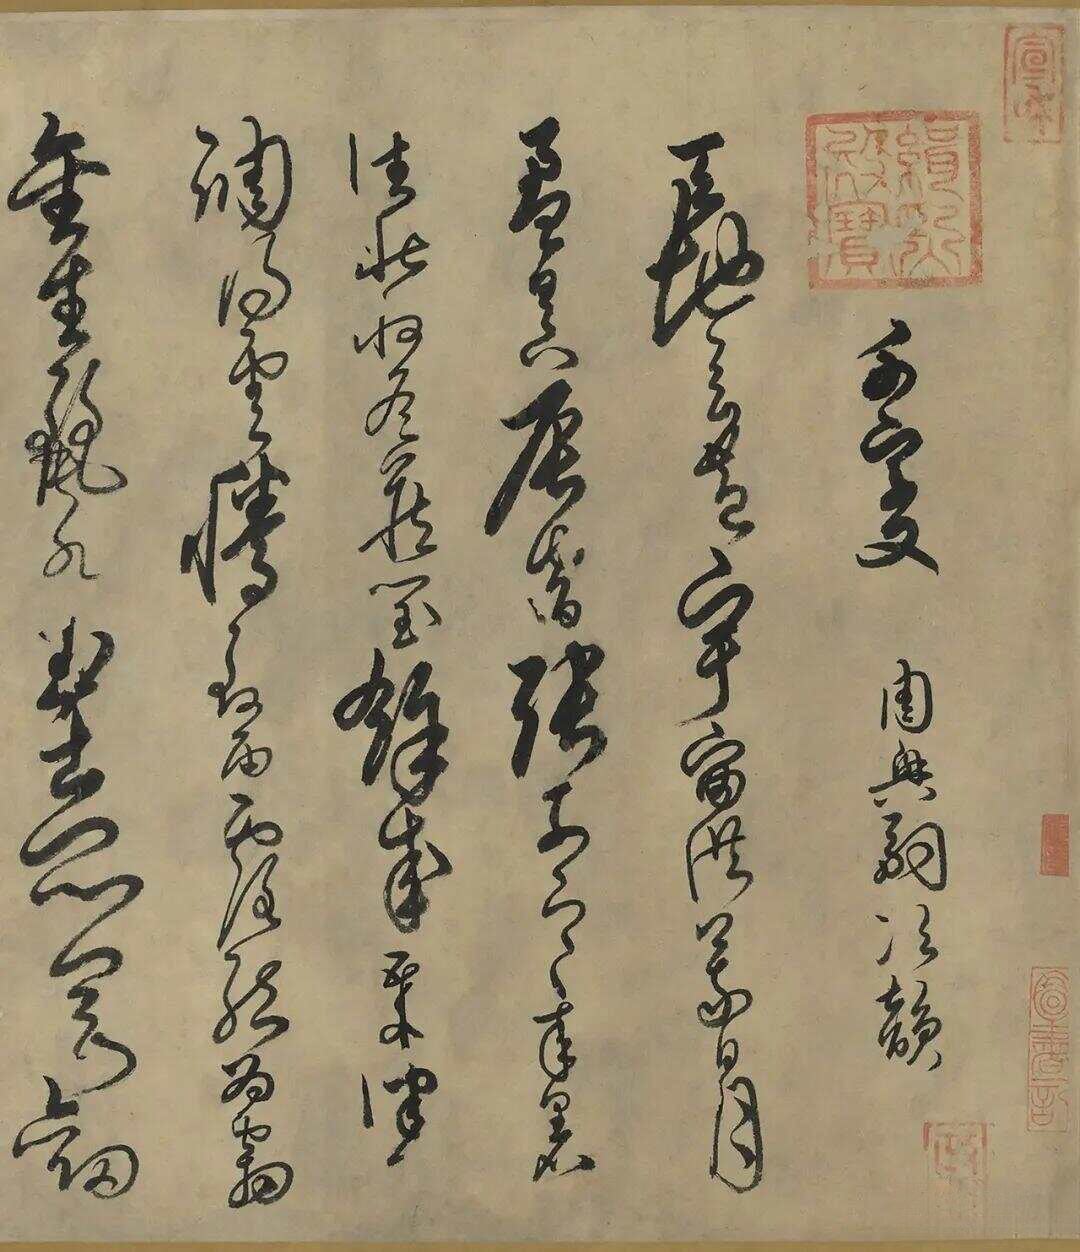 千字文 周興嗣次韻
天地玄黃宇宙洪荒日月
盈昃辰宿張列寒來暑
往秋收冬藏閏餘成歲律
調陽雲騰致雨露結為霜
金生麗水出崑崗劍